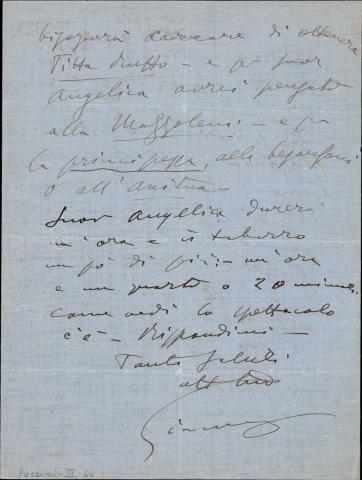 bisognerà cercare di ottenere
Titta Ruffo – e per Suor
Angelica avrei pensato
alla Mazzoleni – e per
la principessa, alla Besanzoni
o all'Anitua –
Suor Angelica durerà
un'ora e il tabarro
un pò di più: un'ora
e un quarto o 20 minuti.
come vedi lo spettacolo
c'è – Rispondimi –
Tanti saluti
aff tuo
Giacomo
Puccini-III-44